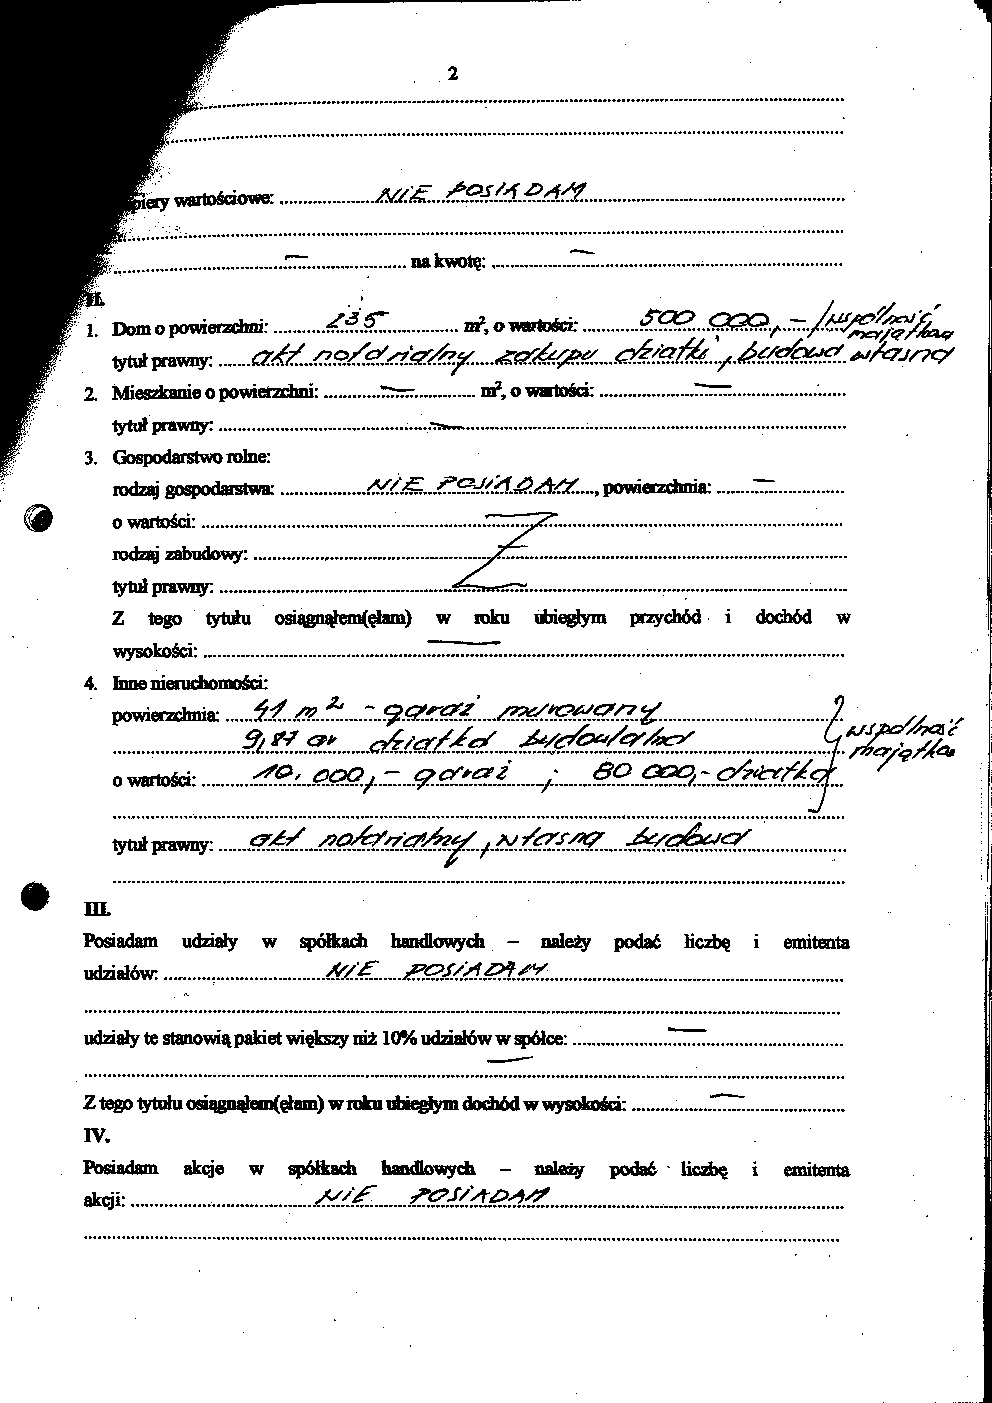 2
papiery wartościowe: NIE POSIADAM
— na kwotę: —
II.
1. Dom o powierzchni: 235 m², o wartości: 500 000,- /wspólność majątkowa
tytuł prawny: akt notarialny zakupu działki, budowa własna
2. Mieszkanie o powierzchni: — m², o wartości: —
tytuł prawny: —
3. Gospodarstwo rolne:
rodzaj gospodarstwa: NIE POSIADAM, powierzchnia: —
o wartości:
rodzaj zabudowy:
tytuł prawny:
Z tego tytułu osiągnąłem(ęłam) w roku ubiegłym przychód i dochód w
wysokości: —
4. Inne nieruchomości:
powierzchnia: 41 m² - garaż murowany
9,87 ar działka budowlana wspólność majątkowa
o wartości: 10.000,- garaż ; 80 000,- działka
tytuł prawny: akt notarialny, własna budowa
III.
Posiadam udziały w spółkach handlowych – należy podać liczbę i emitenta
udziałów: NIE POSIADAM
udziały te stanowią pakiet większy niż 10% udziałów w spółce: —
—
Z tego tytułu osiągnąłem(ęłam) w roku ubiegłym dochód w wysokości: —
IV.
Posiadam akcje w spółkach handlowych – należy podać liczbę i emitenta
akcji: NIE POSIADAM